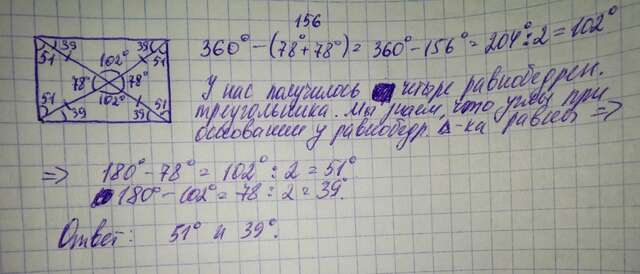 156
360° – (78°+78°) = 360° – 156° = 204° : 2 = 102°
51 39 102° 39 51
78° 78°
51 39 102° 39 51
У нас получилось четыре равнобедрен.
треугольника. Мы знаем, что углы при
основании у равнобедр. Δ-ка равны =>
=> 180° – 78° = 102° : 2 = 51°
180° – 102° = 78 : 2 = 39°.
Ответ: 51° и 39°.